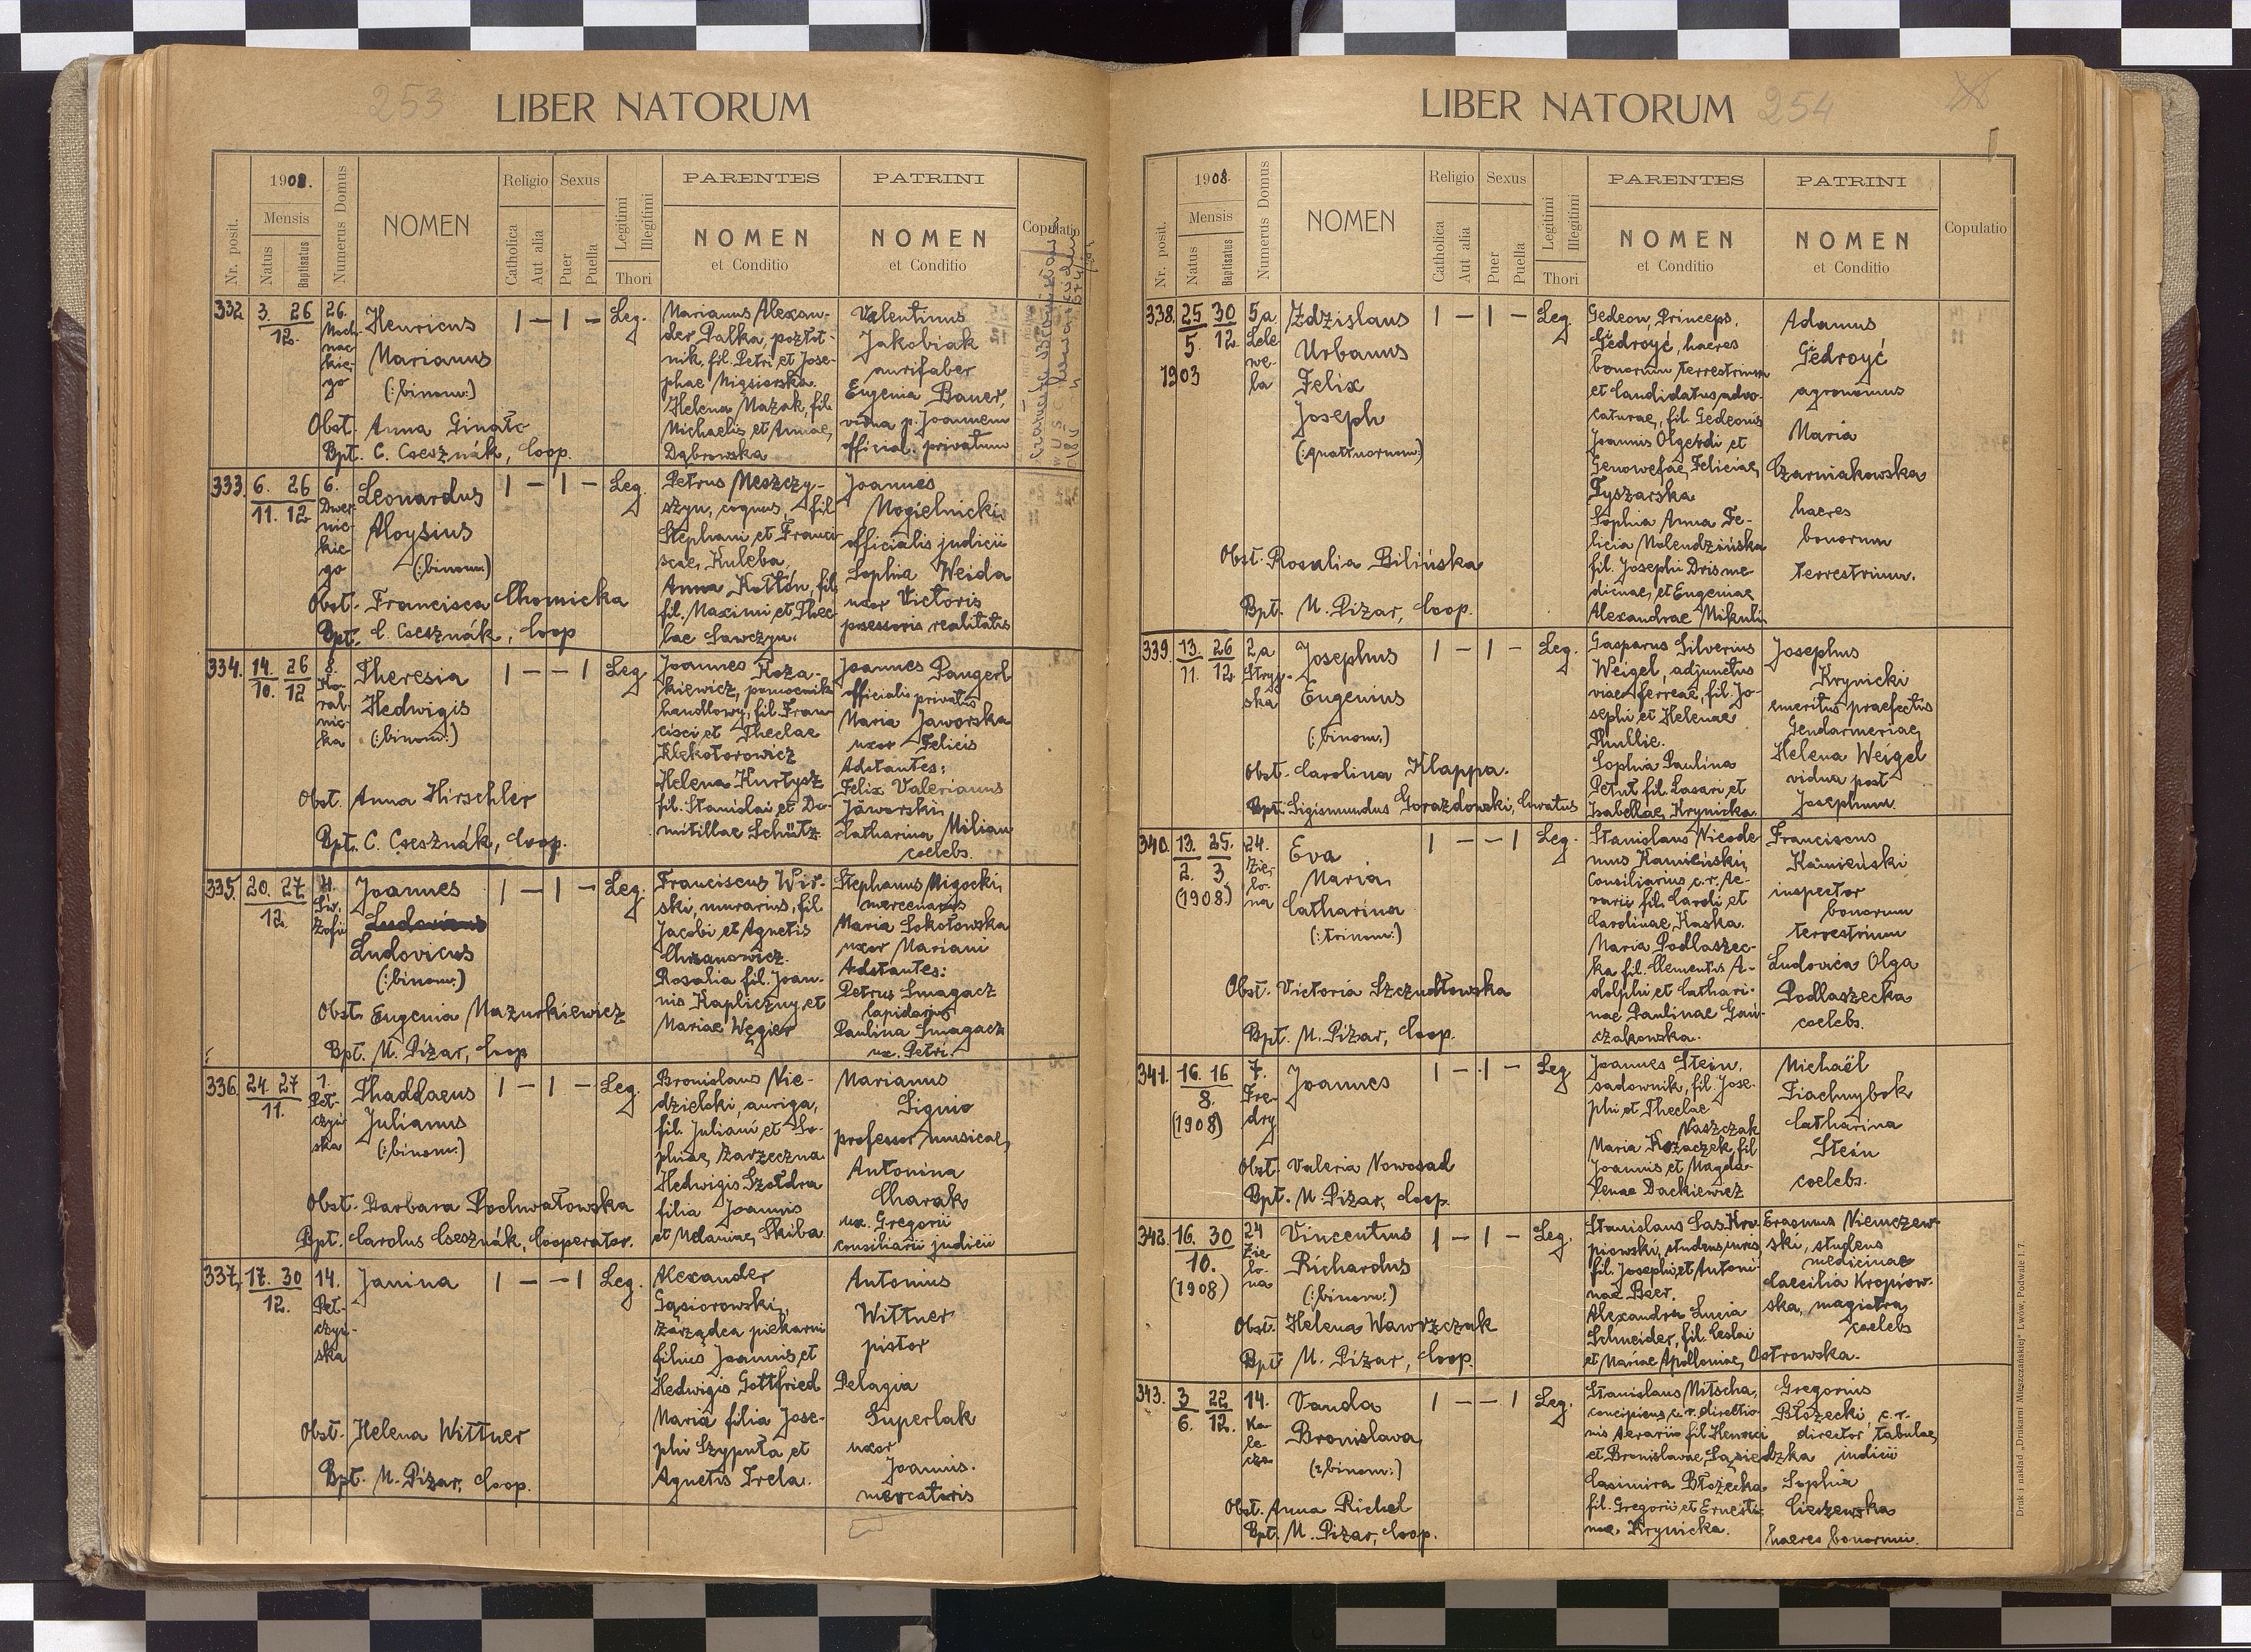 253
LIBER NATORUM
Nr. posit.
1908.
Mensis
Natus
Baptisatus
Numerus Domus
NOMEN
Religio
Catholica
Aut alia
Sexus
Puer
Puella
Legitimi
Illegitimi
Thori
PARENTES
NOMEN
et Conditio
PATRINI
NOMEN
et Conditio
Copulatio
332
3. 26
12.
26.
Moch-
nac-
kie-
go
Henricus
Marianus
(:binom:)
1 — 1 —
Leg.
Obst. Anna Ginatō
Bpt. C. Csesznák, Coop.
Marianus Alexan-
der Palka, pozłot-
nik, fil. Petri et Jose-
phae
Helena Mazak, fil.
Michaelis et Annae,
Dąbrowska
Valentinus
Jakobiak
aurifaber
Eugenia Bauer,
vidua p. Joannem
official. privatum
333.
6. 26
11. 12
6.
Dwer-
nic-
kie-
go
Leonardus
Aloysius
(:binom:)
1 — 1 —
Leg.
Obst. Francisca Chomicka
Bpt. C. Csesznák, Coop
Petrus Meszczy-
szyn, coquus, fil
Stephani et Franci-
scae, Kuleba.
Anna Kołtón, fil.
fil. Maximi et Thec-
lae Sawczyn.
Joannes
Mogielnicki
officialis judicii
Sophia Weida
uxor Victoris
possessoris realitatis
334.
14. 26
10. 12
8.
Ko-
ral-
nic-
ka
Theresia
Hedwigis
(:binom:)
1 — — 1
Leg
Obst. Anna Hirschler
Bpt. C. Csesznák, Coop.
Joannes Koza-
kiewicz, pomocnik
handlowy, fil. Fran-
cisci et Theclae
Klekotorowicz
Helena Kurtysz
fil. Stanislai et Do-
mitillae Schütz
Joannes Pangerl
officialis privatus
Maria Jaworska
uxor Felicis
Adstantes:
Felix Valerianus
Jaworski,
Catharina Milian
coelebs.
335.
20. 27
12.
Św.
Zofii
Joannes
Ludovicus
(:binom:)
1 — 1 —
Leg.
Obst. Eugenia Mazurkiewicz
Bpt. M. Pizar, Coop
Franciscus Wir-
ski, murarius, fil.
Jacobi et Agnetis
Chrzanowicz.
Rosalia fil. Joan-
nis Kapliczny, et
Mariae Węgier
Stephanus Migocki,
mercenarius
Maria Sokołowska
uxor Mariani
Adstantes:
Petrus Smagacz
lapidarius
Paulina Smagacz
ux. Petri.
336.
24. 27
11.
1.
Peł-
czyń
ska
Thaddaeus
Julianus
(:binom:)
1 — 1 —
Leg.
Obst. Barbara Pochwatowska
Bpt. Carolus Csesznák, Cooperator.
Bronislaus Nie-
dzielski, auriga,
fil. Juliani et So-
phiae, Zarzeczna
Hedwigis Szołdra
filia Joannis
et Melaniae, Skiba
Marianus
Signio
professor musicae,
Antonina
Charak
ux. Gregorii
consiliarii judicii
337.
17. 30
12.
14.
Peł-
czyń-
ska
Janina
1 — — 1
Leg.
Obst. Helena Wittner
Bpt. M. Pizar, Coop.
Alexander
Gąsiorowski,
zarządca piekarni
filius Joannis et
Hedwigis Gottfried
Maria filia Jose-
phi Szypuła et
Agnetis Trela.
Antonius
Wittner
pistor
Pelagia
Superlak
uxor
Joannis.
mercatoris
LIBER NATORUM
254
Nr. posit.
1908.
Mensis
Natus
Baptisatus
Numerus Domus
NOMEN
Religio
Catholica
Aut alia
Sexus
Puer
Puella
Legitimi
Illegitimi
Thori
PARENTES
NOMEN
et Conditio
PATRINI
NOMEN
et Conditio
Copulatio
338.
25 30
5. 12.
1903
5a
Lele
we-
la
Zdzislaus
Urbanus
Felix
Joseph
(:quattuornom:)
1 — 1 —
Leg.
Obst. Rosalia Bilińska
Bpt. M. Pizar, Coop.
Gedeon, Princeps,
Giedroyć, haeres
bonorum terrestrium
et Candidatus advo-
caturae, fil. Gedeonis
Joannis Olgerdi et
Genowefae, Feliciae,
Tyszarska
Sophia Anna Fe-
licia Molendzińska
fil. Josephi Dris me-
dicinae, et Eugeniae
Alexandrae Mikuli
Adamus
Giedroyć
agronomus
Maria
Czarniakowska
haeres
bonorum
terrestrium.
339.
13. 26
11. 12.
2a
Stryj-
ska
Josephus
Eugenius
(:binom:)
1 — 1 —
Leg.
Obst. Carolina Klappa.
Bpt. Sigismundus Gorazdowski, Curatus
Gasparus Silverius
Weigel, adjunctus
viae ferreae, fil. Jo-
sephi et Helenae
Thullie.
Sophia Paulina
Petut fil. Lasari et
Isabellae, Krynicka.
Josephus
Krynicki
emeritus praefectus
Gendarmeriae,
Helena Weigel
vidua post
Josephum.
340.
13. 25.
2. 3
(1908.)
24.
Zie-
lo-
na
Eva
Maria,
Catharina
(:trinom:)
1 — — 1
Leg.
Obst. Victoria Szczudłowska
Bpt. M. Pizar, Coop.
Stanislaus Nicode-
mus Kamieński,
Consiliarius c. r. Ae-
rarii fil. Caroli et
Carolinae Kaska.
Maria Podlaszec-
ka fil. Clementis A-
dolphi et Cathari-
nae Paulinae Goń-
czakowska.
Franciscus
Kamieński
inspector
bonorum
terrestrium
Ludovica Olga
Podlaszecka
coelebs.
341.
16. 16
8.
(1908)
7.
Fre-
dry
Joannes
1 — 1 —
Leg
Obst. Valeria Nowosad
Bpt. M. Pizar, Coop.
Joannes Stein,
sadownik, fil. Jose-
phi et Theclae
Naszczak
Maria Kozaczek fil
Joannis et Magda-
lenae Dackiewicz
Michaël
Fiachnybok
Catharina
Stein
coelebs.
342.
16. 30
10.
(1908)
24
Zie-
lo-
na
Vincentius
Richardus
(:binom:)
1 — 1 —
Leg.
Obst. Helena Wawrzczak
Bpt M. Pizar, Coop.
Stanislaus Sas Kro-
piowski, studens iuris
fil. Josephi et Antoni-
nae Baer.
Alexandra Lucia
Schneider, fil. Ceslai
et Mariae Apolloniae, Ostrowska.
Erasmus Niemczew-
ski, studens
medicinae
Caecilia Kropiow-
ska, magistra,
coelebs
343.
3 22
6. 12.
14.
Ka-
le-
cza
Vanda
Bronislava,
(:binom:)
1 — — 1
Leg.
Obst. Anna Richel
Bpt. M. Pizar, Coop.
Stanislaus Mitscha,
concipiens c. r. directio-
nis Aerarii fil. Henrici
et Bronislavae, Sąsiedzka
Casimira Błożecka
fil. Gregorii et Ernesti-
nae Krynicka.
Gregorius
Błożecki, c. r.
director tabulae,
indicii
Sophia
Cieszewska
haeres bonorum.
Druk i nakład „Drukarni Mieszczańskiej" Lwów, Podwale l. 7.